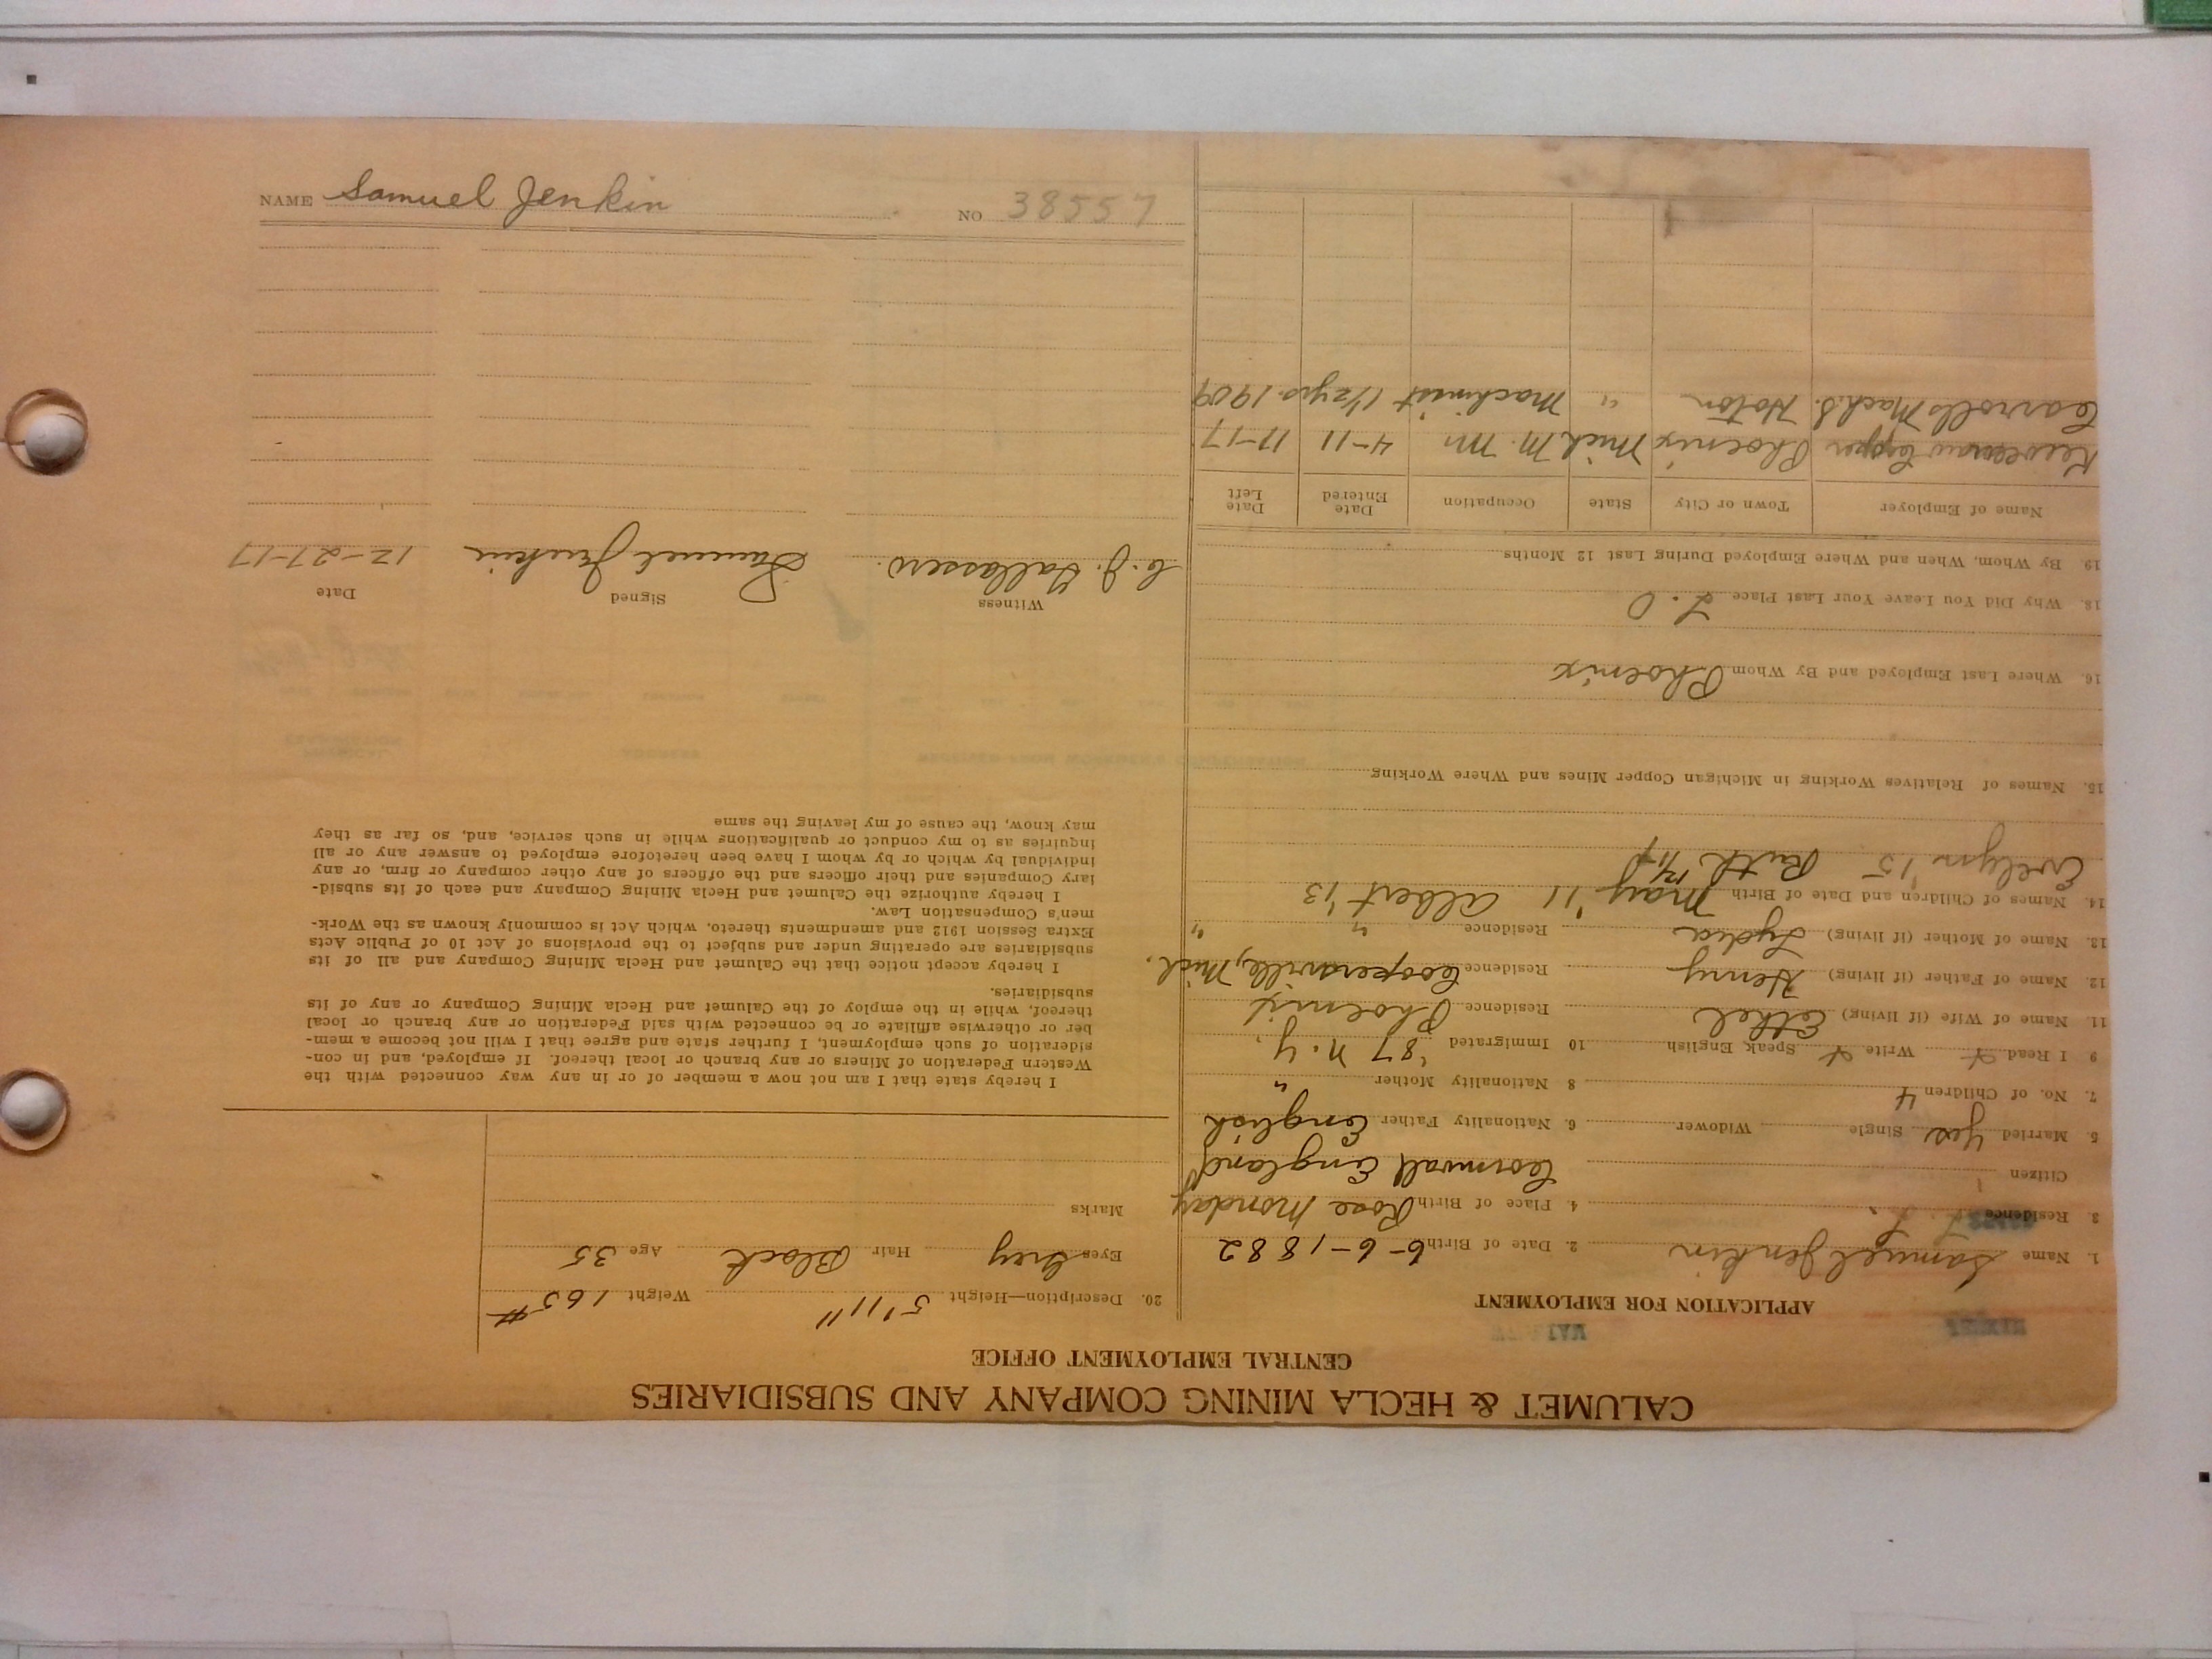 CALUMET & HECLA MINING COMPANY AND SUBSIDIARIES
CENTRAL EMPLOYMENT OFFICE
APPLICATION FOR EMPLOYMENT
1. Name Samuel Jenkin 2. Date of Birth 6-6-1882
3 Residence 4. Place of Birth Rose Monday
Citizen Cornwall England
5. Married yes Single Widower 6. Nationality Father English
7. No. of Children 4 8 Nationality Mother "
9 I Read Write Speak English 10 Immigrated '87 N.Y.
11. Name of Wife (if living) Ethel Residence Phoenix
12. Name of Father (if living) Henry Residence Coopersville, Mich.
13. Name of Mother (if living) Lydia Residence " "
14. Names of Children and Date of Birth May '11 Albert '13
Evelyn '15 Ruth 12/17
15. Names of Relatives Working in Michigan Copper Mines and Where Working
16. Where Last Employed and By Whom Phoenix
18. Why Did You Leave Your Last Place L.O
19. By Whom, When and Where Employed During Last 12 Months
Name of Employer Town or City State Occupation Date Entered Date Left
Keweenaw Copper Phoenix Mich M. M. 4-11 11-17
Carrolls Mach. S. Hoton " Machinist 1 1/2 yrs. 1909
20. Description—Height 5'11" Weight 165#
Eyes Grey Hair Black Age 35
Marks
I hereby state that I am not now a member of or in any way connected with the
Western Federation of Miners or any branch or local thereof. If employed, and in con-
sideration of such employment, I further state and agree that I will not become a mem-
ber or otherwise affiliate or be connected with said Federation or any branch or local
thereof, while in the employ of the Calumet and Hecla Mining Company or any of its
subsidiaries.
I hereby accept notice that the Calumet and Hecla Mining Company and all of its
subsidiaries are operating under and subject to the provisions of Act 10 of Public Acts
Extra Session 1912 and amendments thereto, which Act is commonly known as the Work-
men's Compensation Law.
I hereby authorize the Calumet and Hecla Mining Company and each of its subsid-
iary Companies and their officers and the officers of any other company or firm, or any
individual by which or by whom I have been heretofore employed to answer any or all
inquiries as to my conduct or qualifications while in such service, and, so far as they
may know, the cause of my leaving the same
Witness Signed Date
C. J. Samuel Jenkin 12-27-17
NAME Samuel Jenkin NO 38557